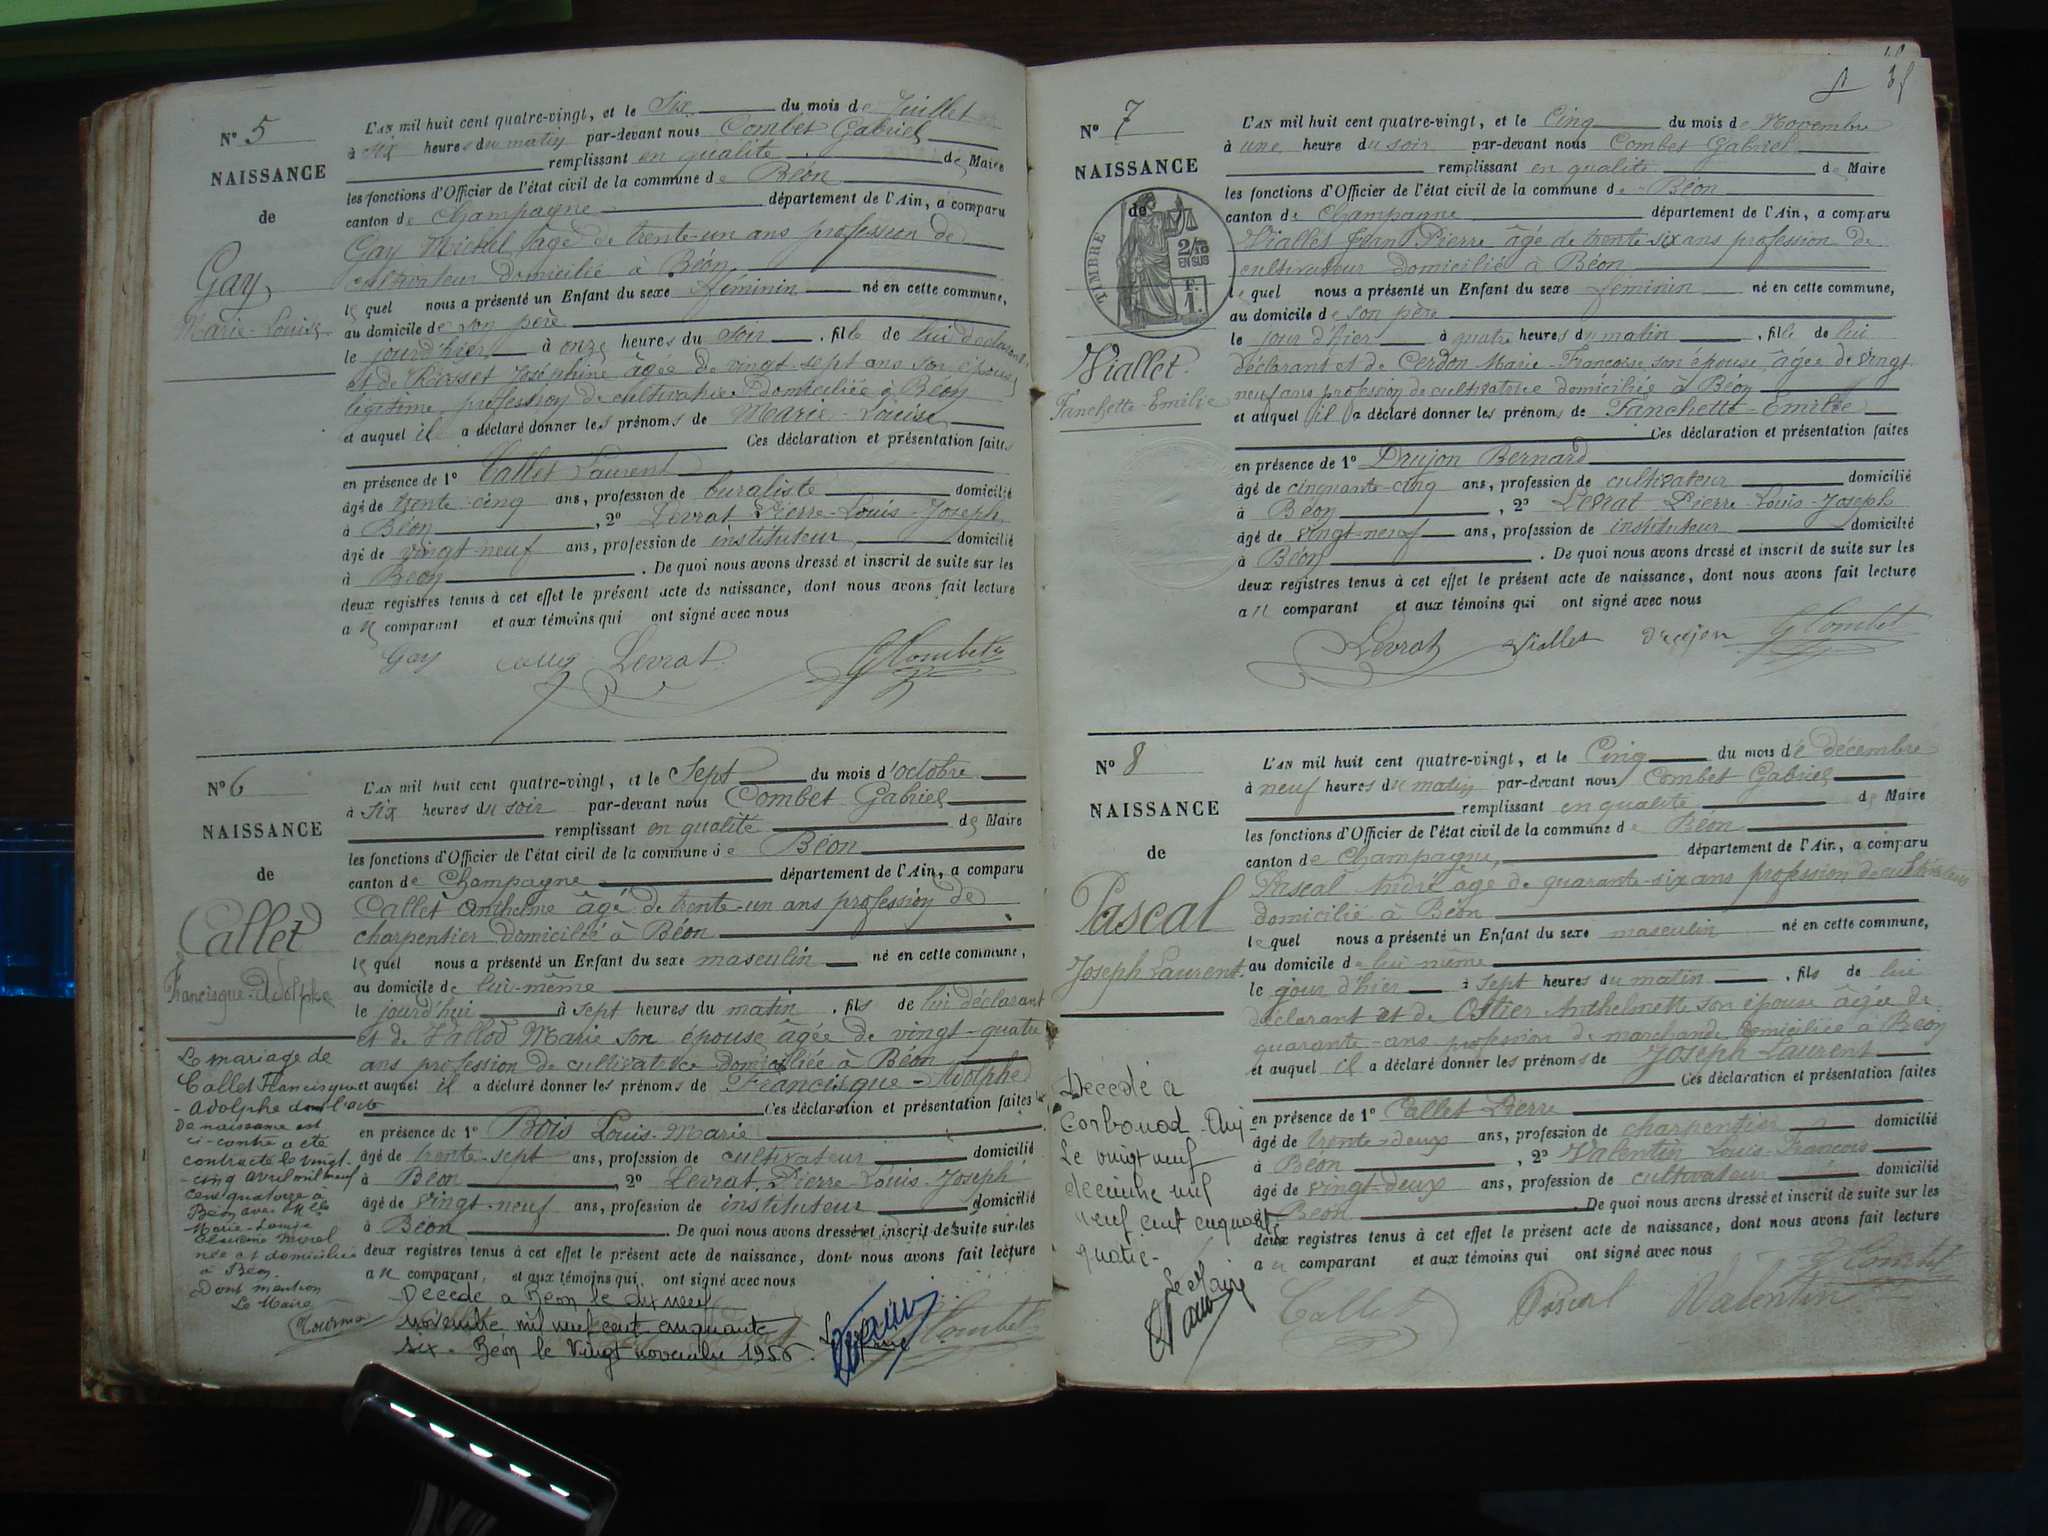 N° 5
NAISSANCE
de
Gay
Marie-Louise
L'AN mil huit cent quatre-vingt, et le Six du mois de Juillet
à six heures du matin par-devant nous Combet Gabriel
remplissant en qualité de Maire
les fonctions d'Officier de l'état civil de la commune de Béon
canton de Champagne département de l'Ain, a comparu
Gay Michel âgé de trente-un ans profession de
cultivateur domicilié à Béon
lequel nous a présenté un Enfant du sexe féminin né en cette commune,
au domicile de son père
le jourd'hier à onze heures du soir, fille de lui déclarant
et de Josephine âgée de vingt-sept ans son épouse
légitime, profession de cultivatrice domiciliée à Béon
et auquel il a déclaré donner les prénoms de Marie-Louise
Ces déclaration et présentation faites
en présence de 1° Callet Laurent
âgé de trente-cinq ans, profession de buraliste domicilié
à Béon, 2° Levrat Pierre-Louis-Joseph
âgé de vingt-neuf ans, profession de instituteur domicilié
à Béon. De quoi nous avons dressé et inscrit de suite sur les
deux registres tenus à cet effet le présent acte de naissance, dont nous avons fait lecture
au comparant et aux témoins qui ont signé avec nous
Gay Levrat GCombet
N° 6
NAISSANCE
de
Callet
Francisque-Adolphe
L'AN mil huit cent quatre-vingt, et le Sept du mois d'octobre
à six heures du soir par-devant nous Combet Gabriel
remplissant en qualité de Maire
les fonctions d'Officier de l'état civil de la commune de Béon
canton de Champagne département de l'Ain, a comparu
Callet Anthelme âgé de trente-un ans profession de
charpentier domicilié à Béon
lequel nous a présenté un Enfant du sexe masculin né en cette commune,
au domicile de lui-même
le jourd'hui à sept heures du matin, fils de lui déclarant
et de Vallod Marie son épouse âgée de vingt-quatre
ans profession de cultivatrice domiciliée à Béon
et auquel il a déclaré donner les prénoms de Francisque-Adolphe
Ces déclaration et présentation faites
en présence de 1° Bois Louis-Marie
âgé de trente-sept ans, profession de cultivateur domicilié
à Béon, 2° Levrat Pierre-Louis-Joseph
âgé de vingt-neuf ans, profession de instituteur domicilié
à Béon. De quoi nous avons dressé et inscrit de suite sur les
deux registres tenus à cet effet le présent acte de naissance, dont nous avons fait lecture
au comparant, et aux témoins qui ont signé avec nous
Le mariage de
Callet Francisque
-Adolphe dont l'acte
de naissance est
ci-contre a été
contracté le vingt-
-cinq avril mil neuf
cent quatorze à
Béon avec Mlle
Marie-Louise
Morel
née et domiciliée
à Béon.
Dont mention
Le Maire
Décédé à Béon le dix neuf
novembre mil neuf cent cinquante
six. Béon le vingt novembre 1956.
GCombet
35
N° 7
NAISSANCE
de
TIMBRE
2/10
EN SUS
F.
1.
Viallet
Fanchette-Emilie
L'AN mil huit cent quatre-vingt, et le Cinq du mois de Novembre
à une heure du soir par-devant nous Combet Gabriel
remplissant en qualité de Maire
les fonctions d'Officier de l'état civil de la commune de Béon
canton de Champagne département de l'Ain, a comparu
Viallet Jean Pierre âgé de trente-six ans profession de
cultivateur domicilié à Béon
lequel nous a présenté un Enfant du sexe féminin né en cette commune,
au domicile de son père
le jour d'hier à quatre heures du matin, fille de lui
déclarant et de Cerdon Marie-Françoise son épouse âgée de vingt
neuf ans profession de cultivatrice domiciliée à Béon
et auquel il a déclaré donner les prénoms de Fanchette-Emilie
Ces déclaration et présentation faites
en présence de 1° Drujon Bernard
âgé de cinquante-cinq ans, profession de cultivateur domicilié
à Béon, 2° Levrat Pierre-Louis-Joseph
âgé de vingt-neuf ans, profession de instituteur domicilié
à Béon. De quoi nous avons dressé et inscrit de suite sur les
deux registres tenus à cet effet le présent acte de naissance, dont nous avons fait lecture
au comparant et aux témoins qui ont signé avec nous
Levrat Viallet Drujon GCombet
N° 8
NAISSANCE
de
Pascal
Joseph Laurent
L'AN mil huit cent quatre-vingt, et le Cinq du mois de décembre
à neuf heures du matin par-devant nous Combet Gabriel
remplissant en qualité de Maire
les fonctions d'Officier de l'état civil de la commune de Béon
canton de Champagne, département de l'Ain, a comparu
Pascal André âgé de quarante-six ans profession de cultivateur
domicilié à Béon
lequel nous a présenté un Enfant du sexe masculin né en cette commune,
au domicile de lui-même
le jour d'hier à sept heures du matin, fils de lui
déclarant et de Ostier Anthelmette son épouse âgée de
quarante-ans profession de marchande domiciliée à Béon
et auquel il a déclaré donner les prénoms de Joseph Laurent
Ces déclaration et présentation faites
en présence de 1° Callet Pierre
âgé de trente-deux ans, profession de charpentier domicilié
à Béon, 2° Valentin Louis-François
âgé de vingt-deux ans, profession de cultivateur domicilié
à Béon. De quoi nous avons dressé et inscrit de suite sur les
deux registres tenus à cet effet le présent acte de naissance, dont nous avons fait lecture
au comparant et aux témoins qui ont signé avec nous
Décédé à
Corbonod Ain
Le vingt neuf
décembre mil
neuf cent cinquante
quatre-
Le Maire
Callet Pascal Valentin GCombet